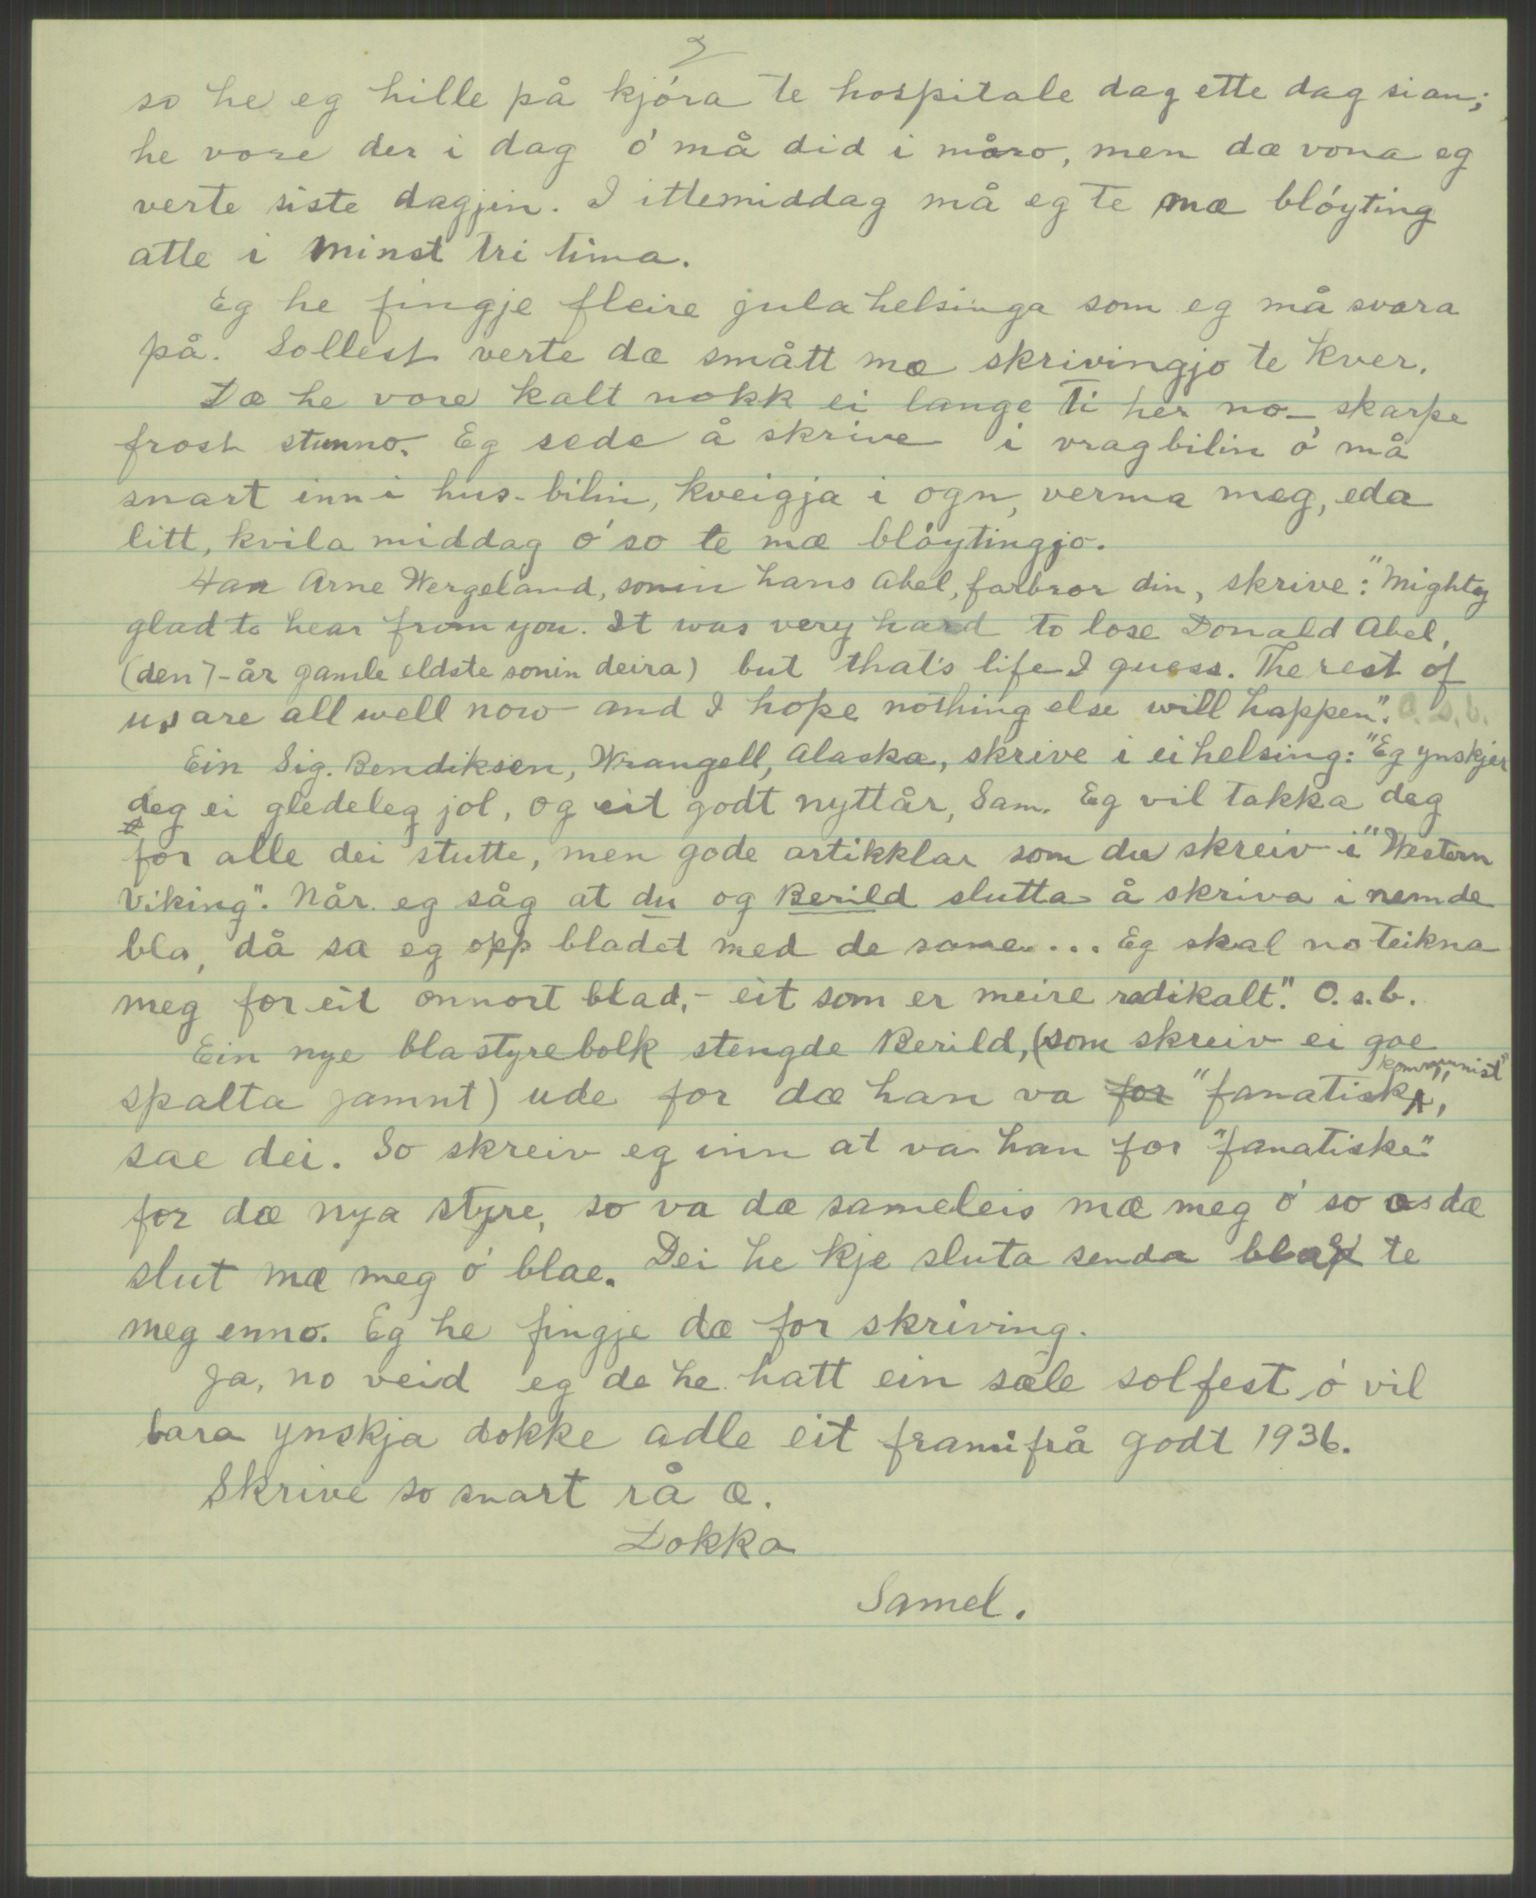 2
so he eg hille på kjóra te hospitale dag ette dag sian;
he vore der i dag ó må did i måro, men dæ vona eg
verte siste dagjin. I ittemiddag må eg te mæ blóyting
atte i minst tri tima.
Eg he fingje fleire jula helsinga som eg må svara
på. Sollest verte dæ smått mæ skrivingjo te kver.
Dæ he vore kalt nokk ei lange ti her no – skarpe
frost stunno. Eg sede å skrive i vragbilin ó må
snart inn i hus-bilin, kveigja i ogn, verma meg, eda
litt, kvila middag ó so te mæ blóytingjo.
Han Arne Wergeland, sonin hans Abel, farbror din, skrive: "Mighty
glad to hear from you. It was very hard to lose Donald Abel,
(den 7-år gamle eldste sonin deira) but that's life I guess. The rest of
us are all well now and I hope nothing else will happen". O.s.b.
Ein Sig. Bendiksen, Wrangell, Alaska, skrive i ei helsing: "Eg ynskjer
deg ei gledeleg jol, og eit godt nyttår, Sam. Eg vil takka deg
for alle dei stutte, men gode artikklar som du skreiv i "Western
Viking". Når eg såg at du og Berild slutta å skriva i nemde
bla, då sa eg opp bladet med de same... Eg skal no teikna
meg for eit onnort blad, - eit som er meire radikalt." O.s.b.
Ein nye blastyrebolk stengde Berild, (som skreiv ei goe
spalta jamnt) ude for dæ han va for "fanatisk kommunist",
sae dei. So skreiv eg inn at va han for "fanatiske"
for dæ nya styre, so va dæ sameleis mæ meg ó so as dæ
slut mæ meg ó blae. Dei he kje sluta senda blae te
meg enno. Eg he fingje dæ for skriving.
Ja, no veid eg de he hatt ein sæle solfest ó vil
bara ynskja dokke adle eit framifrå godt 1936.
Skrive so snart rå æ.
Dokka
Samel.